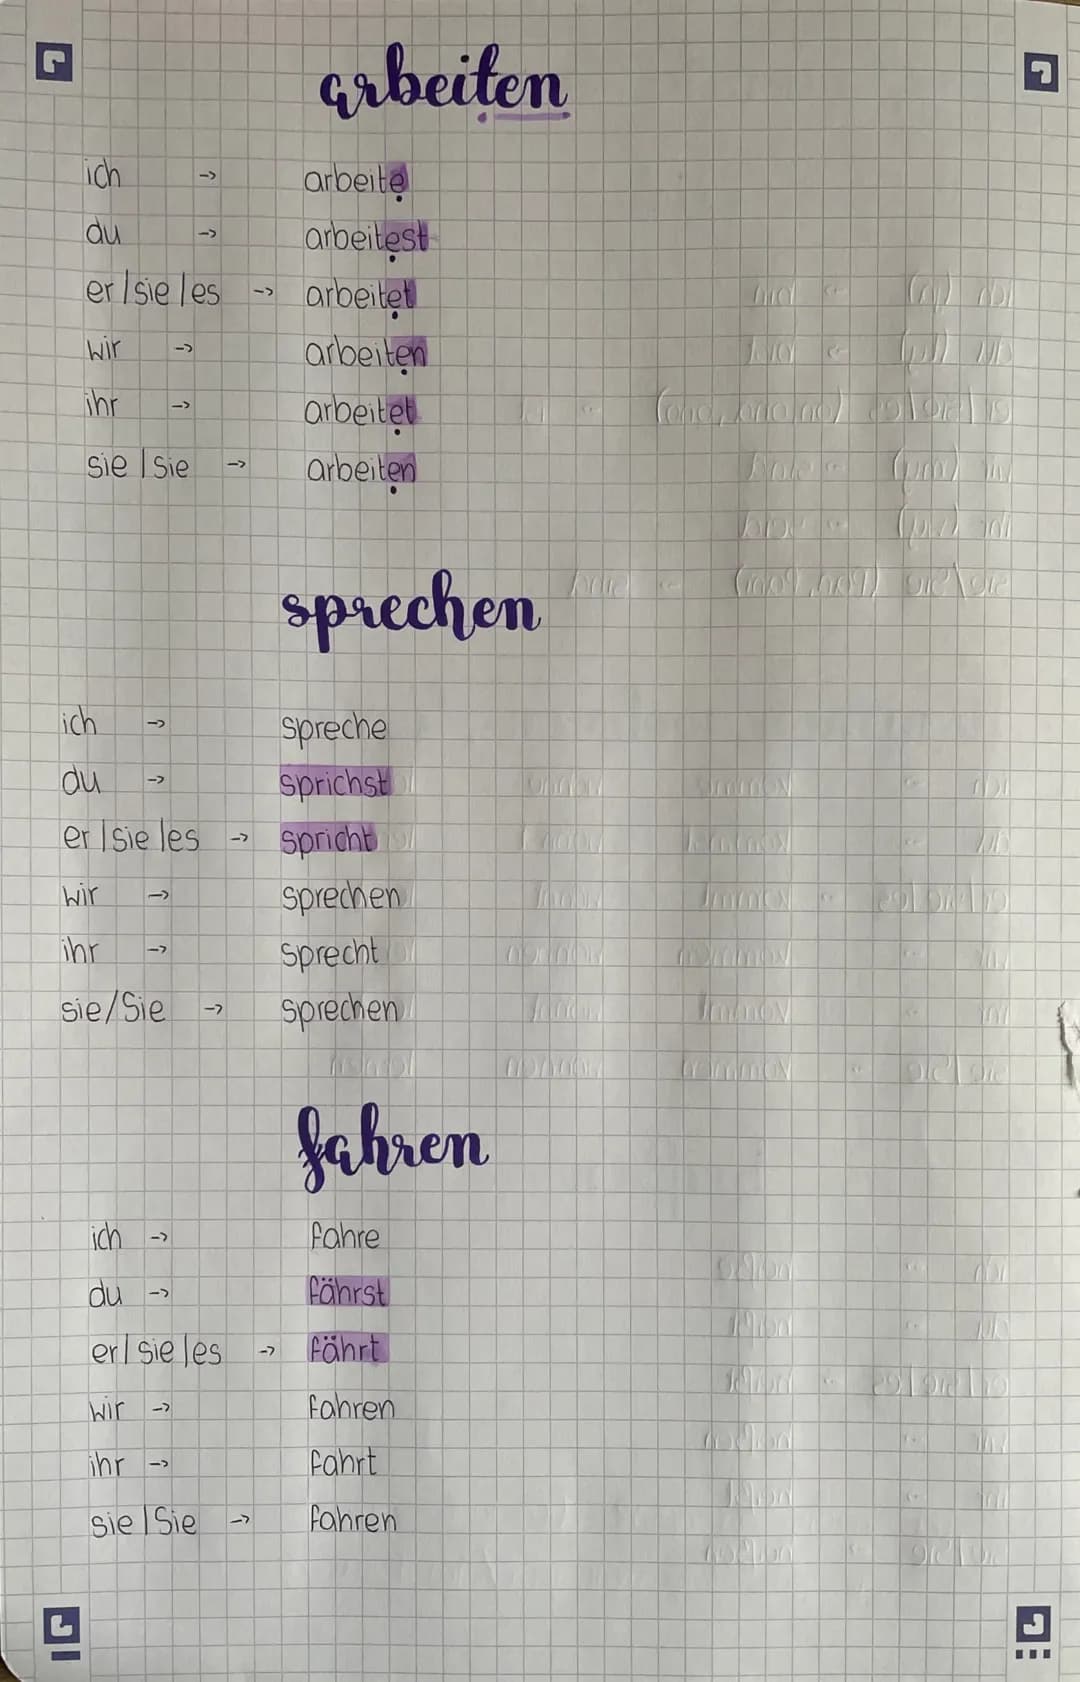 arbeiten
ich -> arbeite
du -> arbeitest
er/sie/es -> arbeitet
wir -> arbeiten
ihr -> arbeitet
sie/sie -> arbeiten
sprechen
ich -> spreche
du -> sprichst
er/sie/es -> spricht
wir -> sprechen
ihr -> sprecht
sie/Sie -> sprechen
fahren
ich -> fahre
du -> fährst
er/sie/es -> fährt
wir -> fahren
ihr -> fahrt
sie/Sie -> fahren